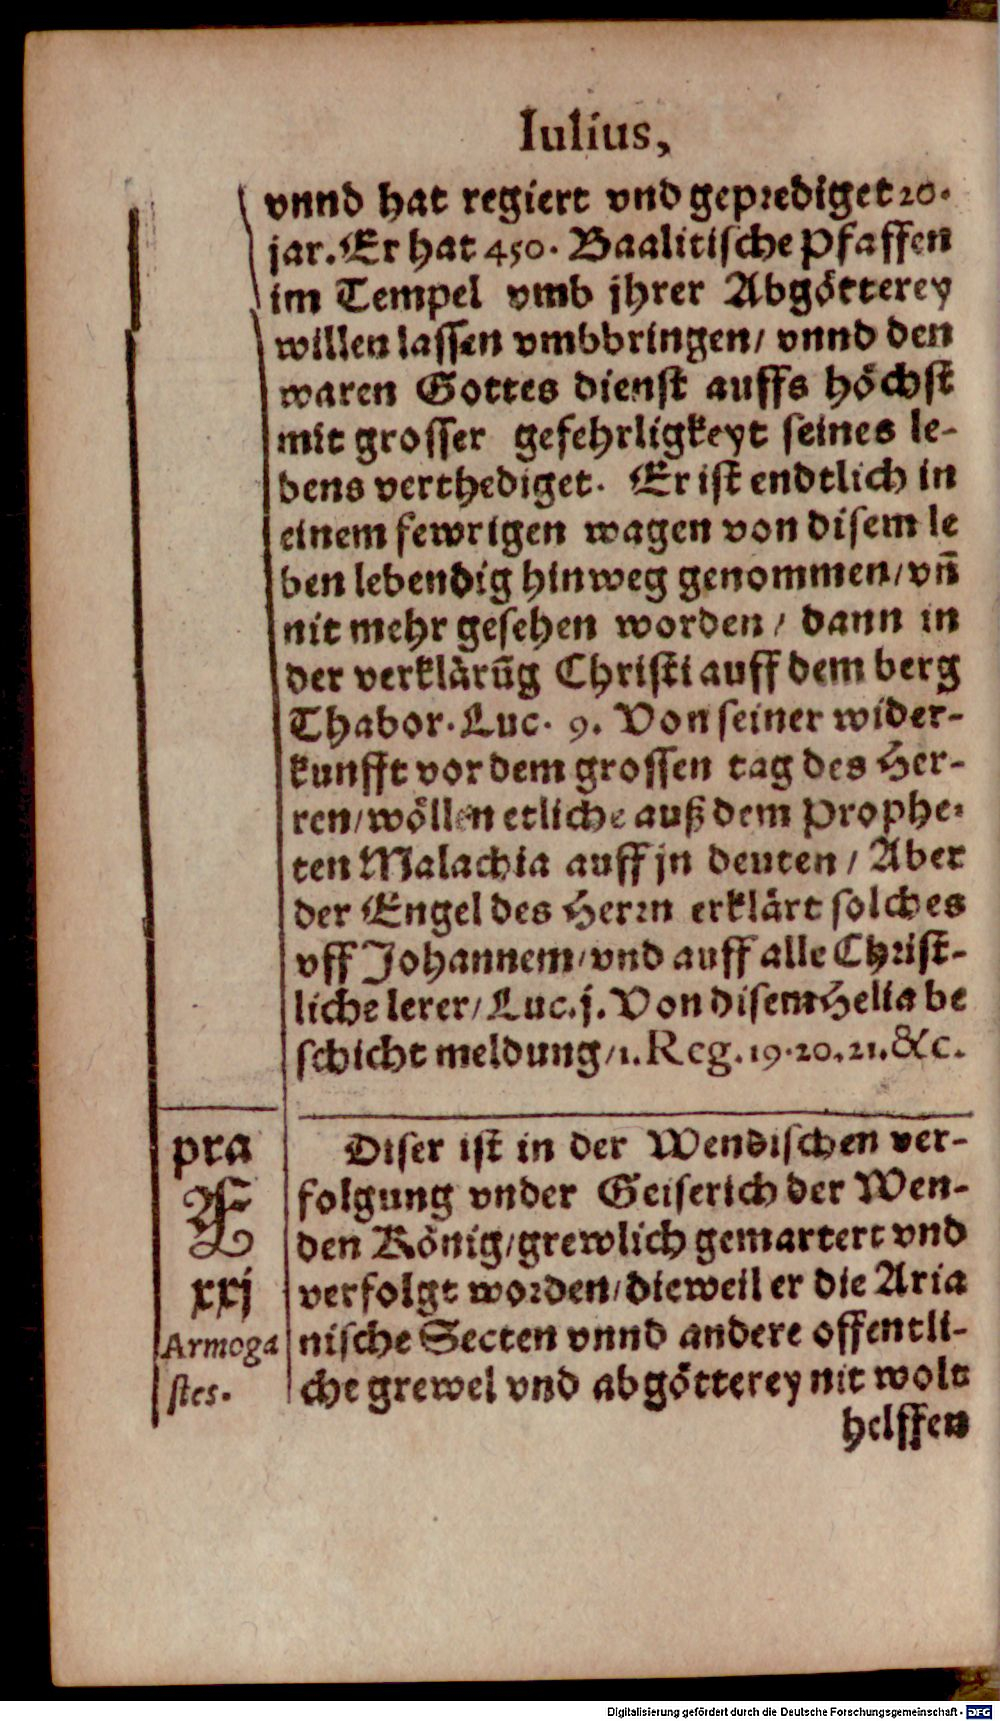 Iulius,
vnnd hat regiert vnd geprediget 20.
jar. Er hat 450. Baalitische Pfaffen
im Tempel vmb jhrer Abgötterey
willen lassen vmbbringen/ vnnd den
waren Gottes dienst auffs höchst
mit grosser gefehrligkeyt seines le-
bens verthediget. Er ist endtlich in
einem fewrigen wagen von disem le
ben lebendig hinweg genommen/ vñ
nit mehr gesehen worden/ dann in
der verklärũg Christi auff dem berg
Thabor. Luc. 9. Von seiner wider-
kunfft vor dem grossen tag des Her-
ren/ wöllen etliche auß dem Prophe-
ten Malachia auff jn deuten/ Aber
der Engel des Herrn erklärt solches
vff Johannem/ vnd auff alle Christ-
liche lerer/ Luc. j. Von disem Helia be
schicht meldung/ 1. Reg. 19. 20. 21. &c.
pra
xxj
Armoga
stes.
Diser ist in der Wendischen ver-
folgung vnder Geiserich der Wen-
den König/ grewlich gemartert vnd
verfolgt worden/ dieweil er die Aria
nische Secten vnnd andere offentli-
che grewel vnd abgötterey nit wolt
helffen
Digitalisierung gefördert durch die Deutsche Forschungsgemeinschaft - DFG